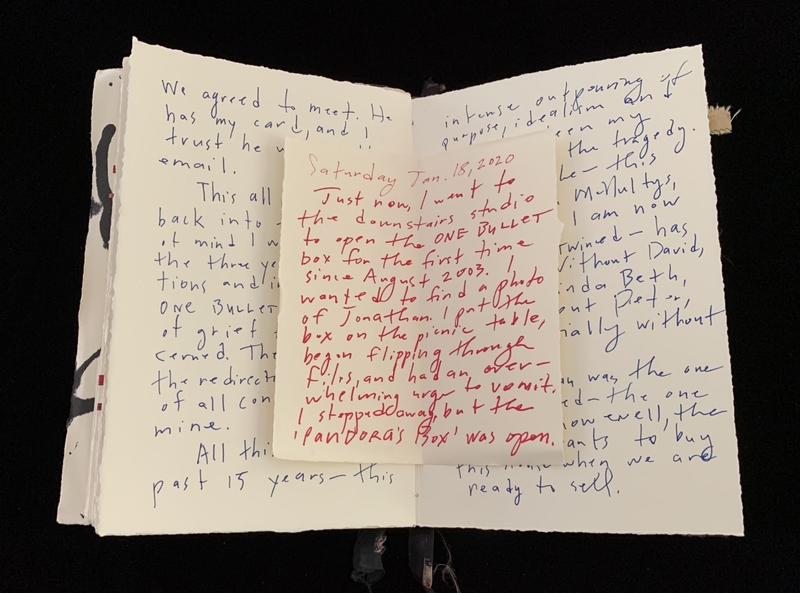 We agreed to meet. He
has my card, and I
trust he
email.
This all
back into
of mind I w
the three ye
tions and i
ONE BULLET
of grief
cerned. The
the redirecti
of all con
mine.
All thi
past 15 years — this
Saturday Jan. 18, 2020
Just now, I went to
the downstairs studio
to open the ONE BULLET
box for the first time
since August 2003. I
wanted to find a photo
of Jonathan. I put the
box on the picnic table,
began flipping through
files, and had an over-
whelming urge to vomit.
I stopped away, but the
'PANDORA'S BOX' was open.
intense outpouring of
purpose, idealism and
een my
the tragedy.
le — this
McNultys,
I am now
twined — has
Without David,
nda Beth,
out Peter,
ially without
was the one
ed — the one
now well, the
ants to buy
this house when we are
ready to sell.